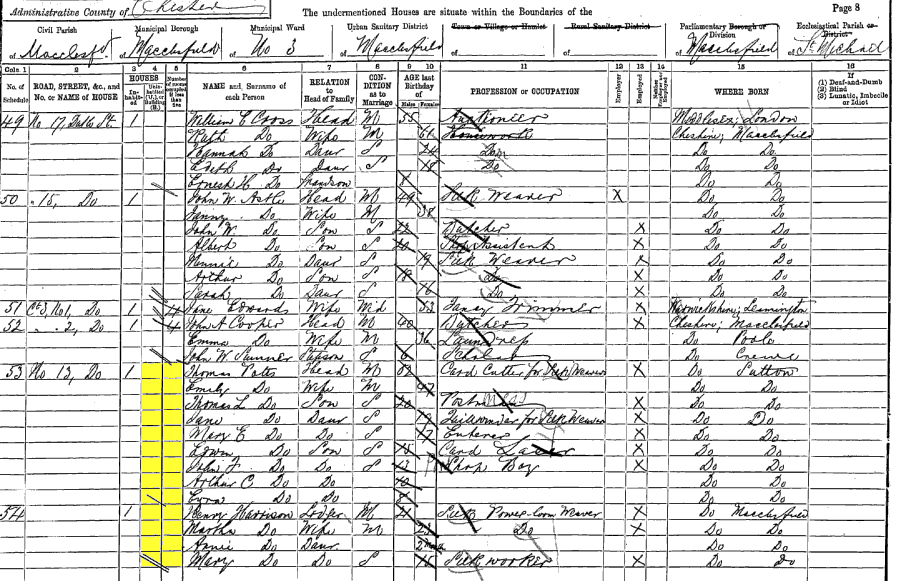 Administrative County of Chester The undermentioned Houses are situate within the Boundaries of the Page 8
Civil Parish Municipal Borough Municipal Ward Urban Sanitary District Town or Village or Hamlet Rural Sanitary District Parliamentary Borough or Division Ecclesiastical Parish or District
of Macclesfd of Macclesfield of No 3 of Macclesfield of of of Macclesfield of St Michael
Coln 1 2 3 4 5 6 7 8 9 10 11 12 13 14 15 16
No. of Schedule ROAD, STREET, &c., and No. or NAME of HOUSE HOUSES Inhabited Number of rooms occupied if less than five NAME and Surname of each Person RELATION to Head of Family CONDITION as to Marriage AGE last Birthday of Males Females PROFESSION or OCCUPATION Employer Employed WHERE BORN If (1) Deaf-and-Dumb (2) Blind (3) Lunatic, Imbecile or Idiot
49 No 17, St. 1 William C Head M 55 London
Ruth Do Wife M 61 Cheshire; Macclesfield
Hannah Do Daur S 24 Do Do
Edith Do Daur S 18 Do Do Do
Ernest H. Do Grandson 8 Do Do
50 " 15, Do 1 John W. Head M 49 Silk Weaver X Do Do
Fanny Do Wife M 38 Do Do
John W. Do Son S 22 Butcher X Do Do
Albert Do Son S 20 Shop Assistant X Do Do
Minnie Do Daur S 19 Silk Weaver X Do Do
Arthur Do Son S 18 Do X Do Do
Sarah Do Daur S 16 Do X Do Do
51 Ct 3, No 1, Do 1 4 Jane Edwards Wife M'd 53 Fancy Trimmer X Warwickshire; Leamington
52 " " 2, Do 1 4 John A Cooper Head M 40 X Cheshire; Macclesfield
Emma Do Wife M 36 Laundress Do Poole
John W. Sumner Stepson 6 Scholar Do Crewe
53 No 13, Do 1 Thomas Head M 52 Card Cutter for Silk Weaver X Do Sutton
Emily Do Wife M 47 Do Do
Thomas L Do Son S 20 Postman X Do Do
Jane Do Daur S 19 for Silk Weaver X Do Do
Mary E Do Do S 17 Enterer X Do Do
Edwin Do Son S 15 Card Lacer X Do Do
John F. Do Do S 13 Shop Boy X Do Do
Arthur C Do Do 10 Do Do
Do Do 8 Do Do
54 1 Henry Harrison Lodger M 21 Silk Power-loom Weaver X Do Macclesfield
Martha Do Wife M 23 Do X Do Do
Annie Do Daur 2 Do Do
Mary Do S 15 Silk worker X Do Do